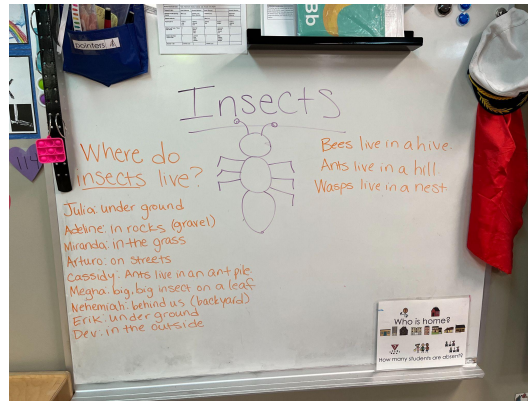 pointers
Bb
Insects
Where do
insects live?
Julia: under ground
Adeline: in rocks (gravel)
Miranda: in the grass
Arturo: on streets
Cassidy: Ants live in an ant pile.
Megha: big, big insect on a leaf
Nehemiah: behind us (backyard)
Erik: under ground
Dev: in the outside
Bees live in a hive.
Ants live in a hill.
Wasps live in a nest.
114
Who is home?
How many students are absent?